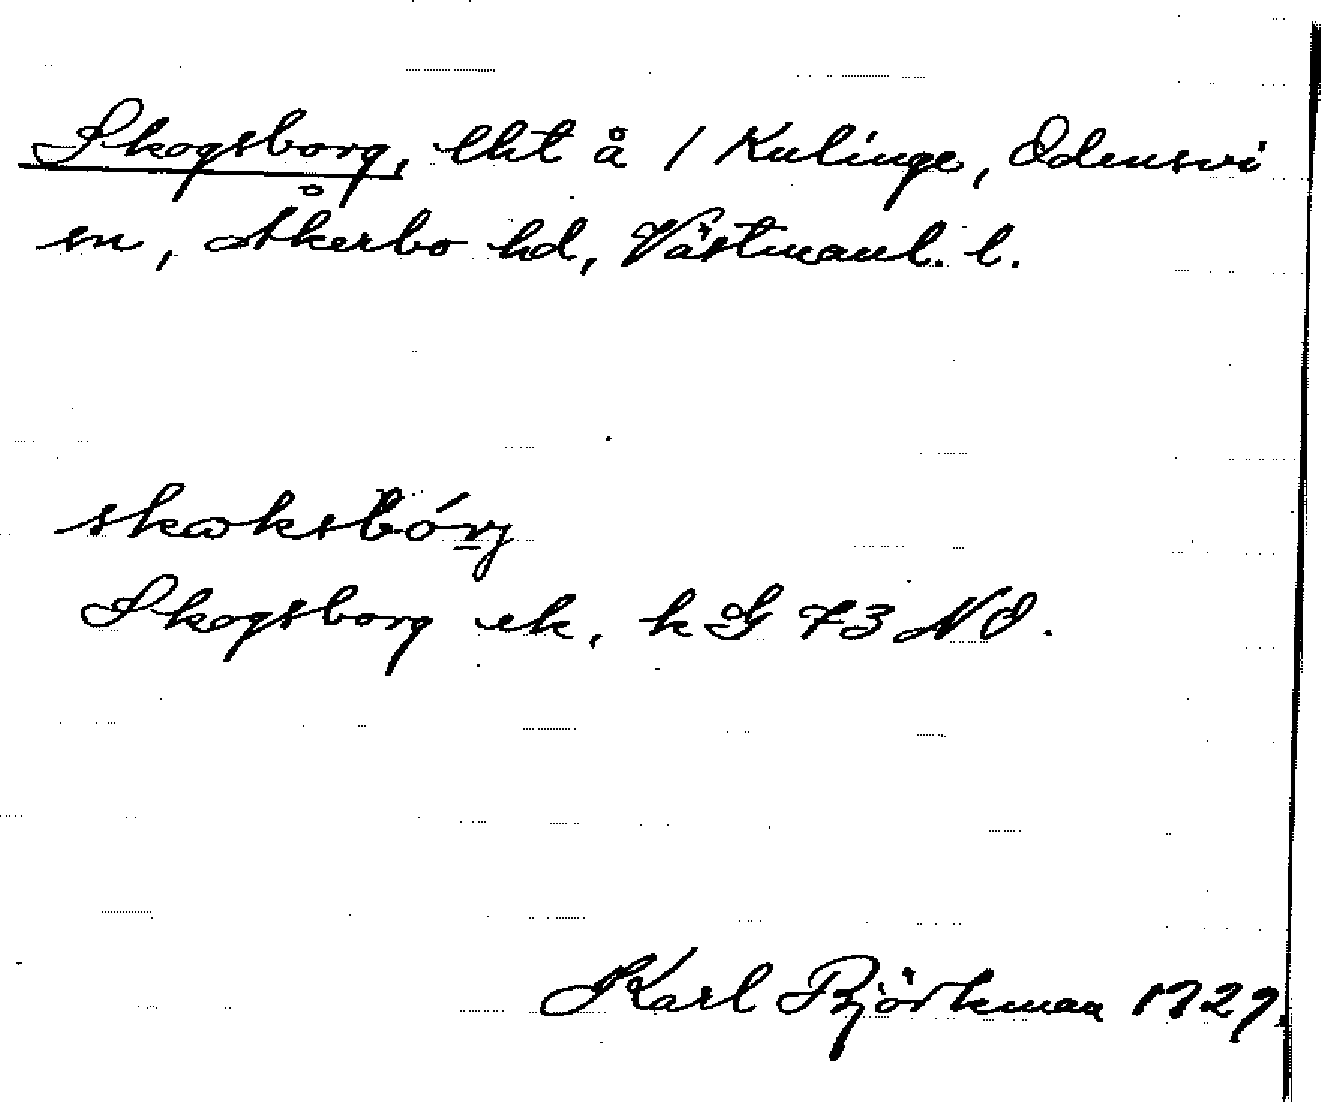 Skogsborg, lht å 1 Kulinge, Odensvi
sn, Åkerbo hd, Västmanl. l.
skoksbórj
Skogsborg ek. k G 73 NO.
Karl Björkman 1929.